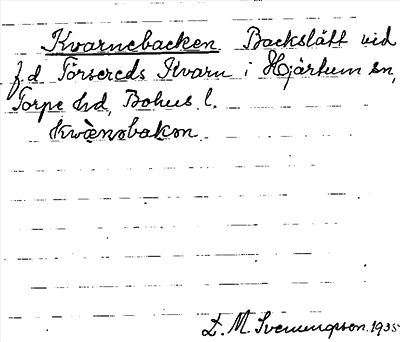 Kvarnebacken Backslätt vid
f.d Törsereds Kvarn i Hjärtum sn,
Torpe hd, Bohus l.
Kwæ̀nəbakən
E. M. Svenungsson. 1935